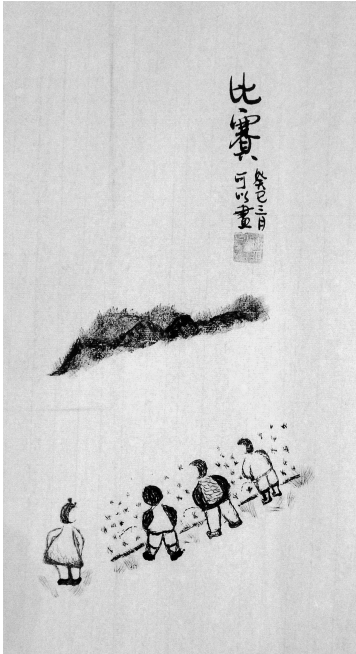 比賽
癸巳三月
可以畫